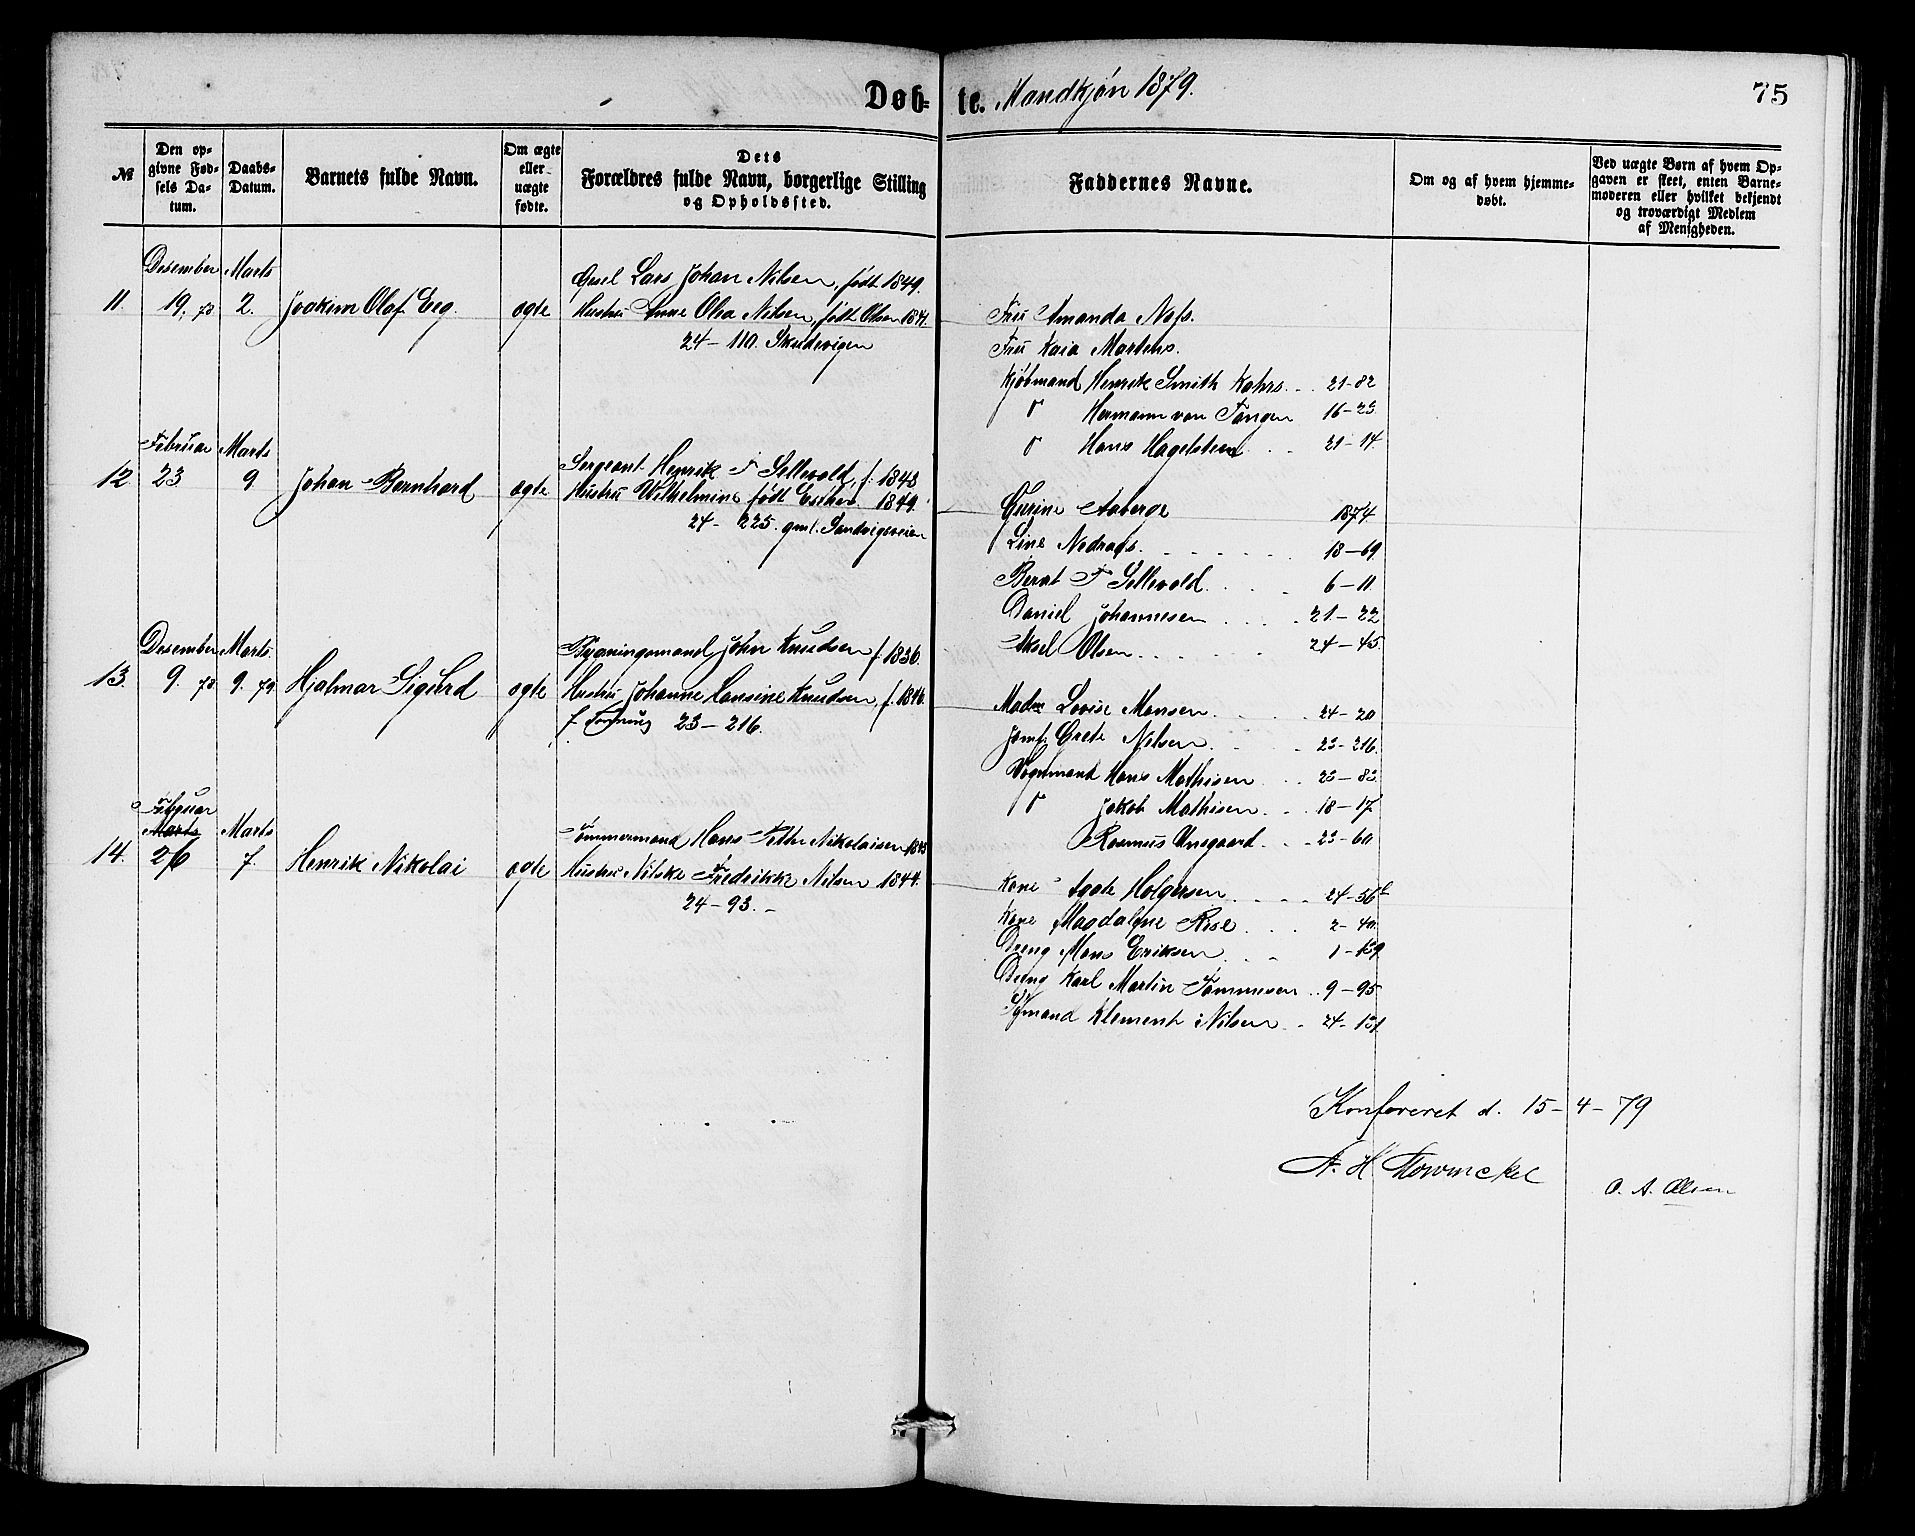 Døb-te. Mandkjøn 1879.
75
№
Den op-
givne Fød-
sels Da-
tum.
Daabs-
Datum.
Barnets fulde Navn.
Om ægte
eller
uægte
fødte.
Dets
Forældres fulde Navn, borgerlige Stilling
og Opholdssted.
Faddernes Navne.
Om og af hvem hjemme-
døbt.
Ved uægte Børn af hvem Op-
gaven er skeet, enten Barne-
moderen eller hvilket bekjendt
og troværdigt Medlem
af Menigheden.
Desember Marts
11. 19, 78 2. Joakim Olaf Eeg. ægte
Lars Johan Nilsen, født 1849.
Hustru Anne Olea Nilsen, født Olsen 1841.
24-110. Skudevigen
Fru Amanda
Fru Kaia Martens.
Kjøbmand Henrik Smith Kahrs. . . 21-82
Hermann von Tangen 16-23
Hans Hagelsteen . . . 21-14.
Februar Marts
12. 23 9 Johan Bernhard ægte
Sergeant Henrik F Sellevold, f: 1843
Hustru Wilhelmine født 1849.
24- 225. gml. Sandvigsveien
Gurine Aaberge 1874
Line . . . 18-69
Bernt F Sellevold. . . . 6-11.
Daniel Johannesen . . . . 21-22
Aksel Olsen. . . . 24-45.
Desember Marts.
13. 9. 78 9. 79. Hjalmar Sigurd ægte
Bygningsmand John Knudsen f. 1836.
Hustru Johanne Lansine Knudsen, f. 1846.
f. 23-216.
Madm Lovise Monsen . . . 24-20
Jomf. Grete Nilsen . . . 23-216.
Vognmand Hans Mathisen . . . 23-83.
Jakob Mathisen . . . 18-17
Rasmus Unegaard . . . 23-60
Februar
Marts Marts
14. 26 7. Henrik Nikolai ægte
Tømmermand Hans Peter Nikolaisen 1843
Hustru Nilske Fredrikke Nilsen 1844.
24-93.
Kone Holgersen . . . . 24-56b
Kone Magdalene Rise . . . 2-40.
Dreng Mons Eriksen . . . 1-159
Dreng Karl Martin Tommesen . . 9-95
Klement Nilsen . . 24-151.
Konfereret d. 15-4-79
A. H. Mowinckel
O. A. Olsen